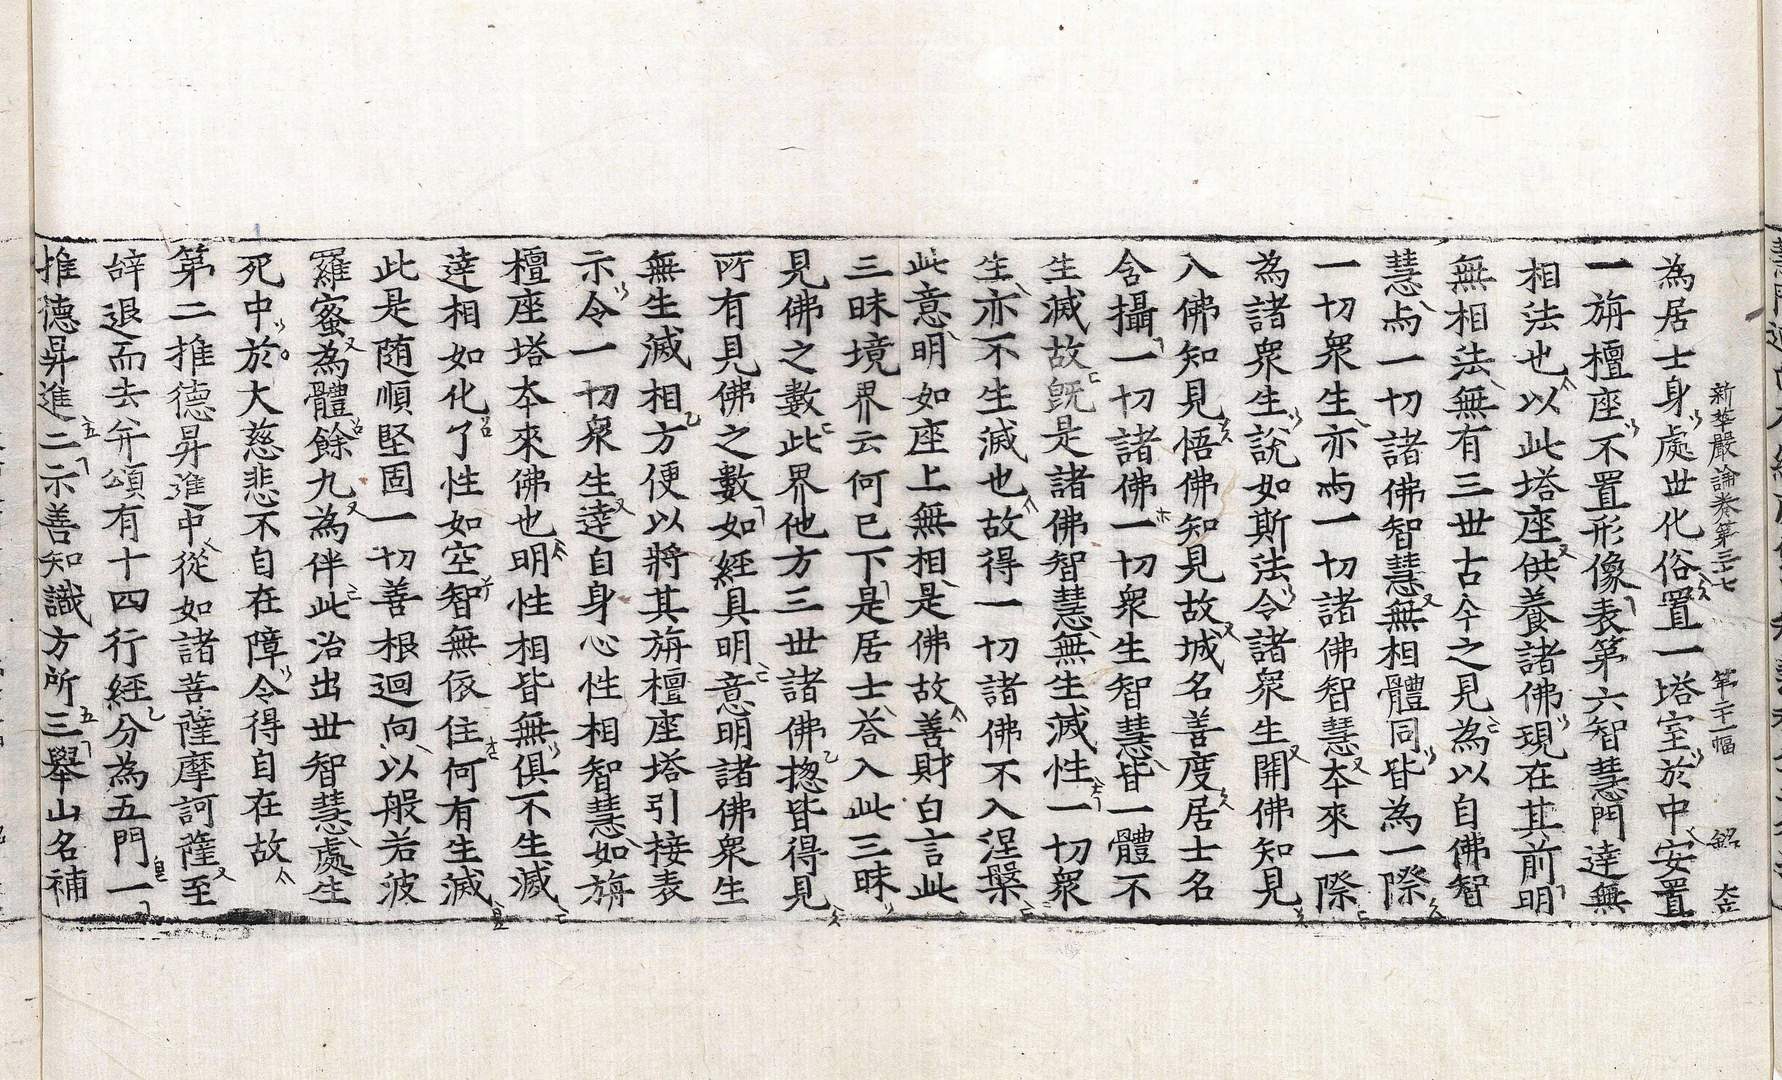 新華嚴論卷第三十七 第二十一幅 銘 大
為居士身處世化俗置一塔室於中安置
一旃檀座不置形像表第六智慧門達無
相法也以此塔座供養諸佛現在其前明
無相法無有三世古今之見為以自佛智
慧与一切諸佛智慧無相體同皆為一際
一切衆生亦与一切諸佛智慧夲來一際
為諸衆生說如斯法令諸衆生開佛知見
入佛知見悟佛知見故城名善度居士名
含攝一切諸佛一切衆生智慧皆一體不
生滅故旣是諸佛智慧無生滅性一切衆
生亦不生滅也故得一切諸佛不入涅槃
此意明如座上無相是佛故善財白言此
三昧境界云何已下是居士荅入此三昧
見佛之數此界他方三世諸佛揔皆得見
所有見佛之數如經具明意明諸佛衆生
無生滅相方便以將其旃檀座塔引接表
示令一切衆生達自身心性相智慧如旃
檀座塔夲來佛也明性相皆無俱不生滅
達相如化了性如空智無依住何有生滅
此是随順堅固一切善根迴向以般若波
羅蜜為體餘九為伴此治出世智慧處生
死中於大慈悲不自在障令得自在故
第二推德昇進中從如諸菩薩摩訶薩至
辝退而去并頌有十四行經分為五門一
推德昇進二示善知識方所三舉山名補